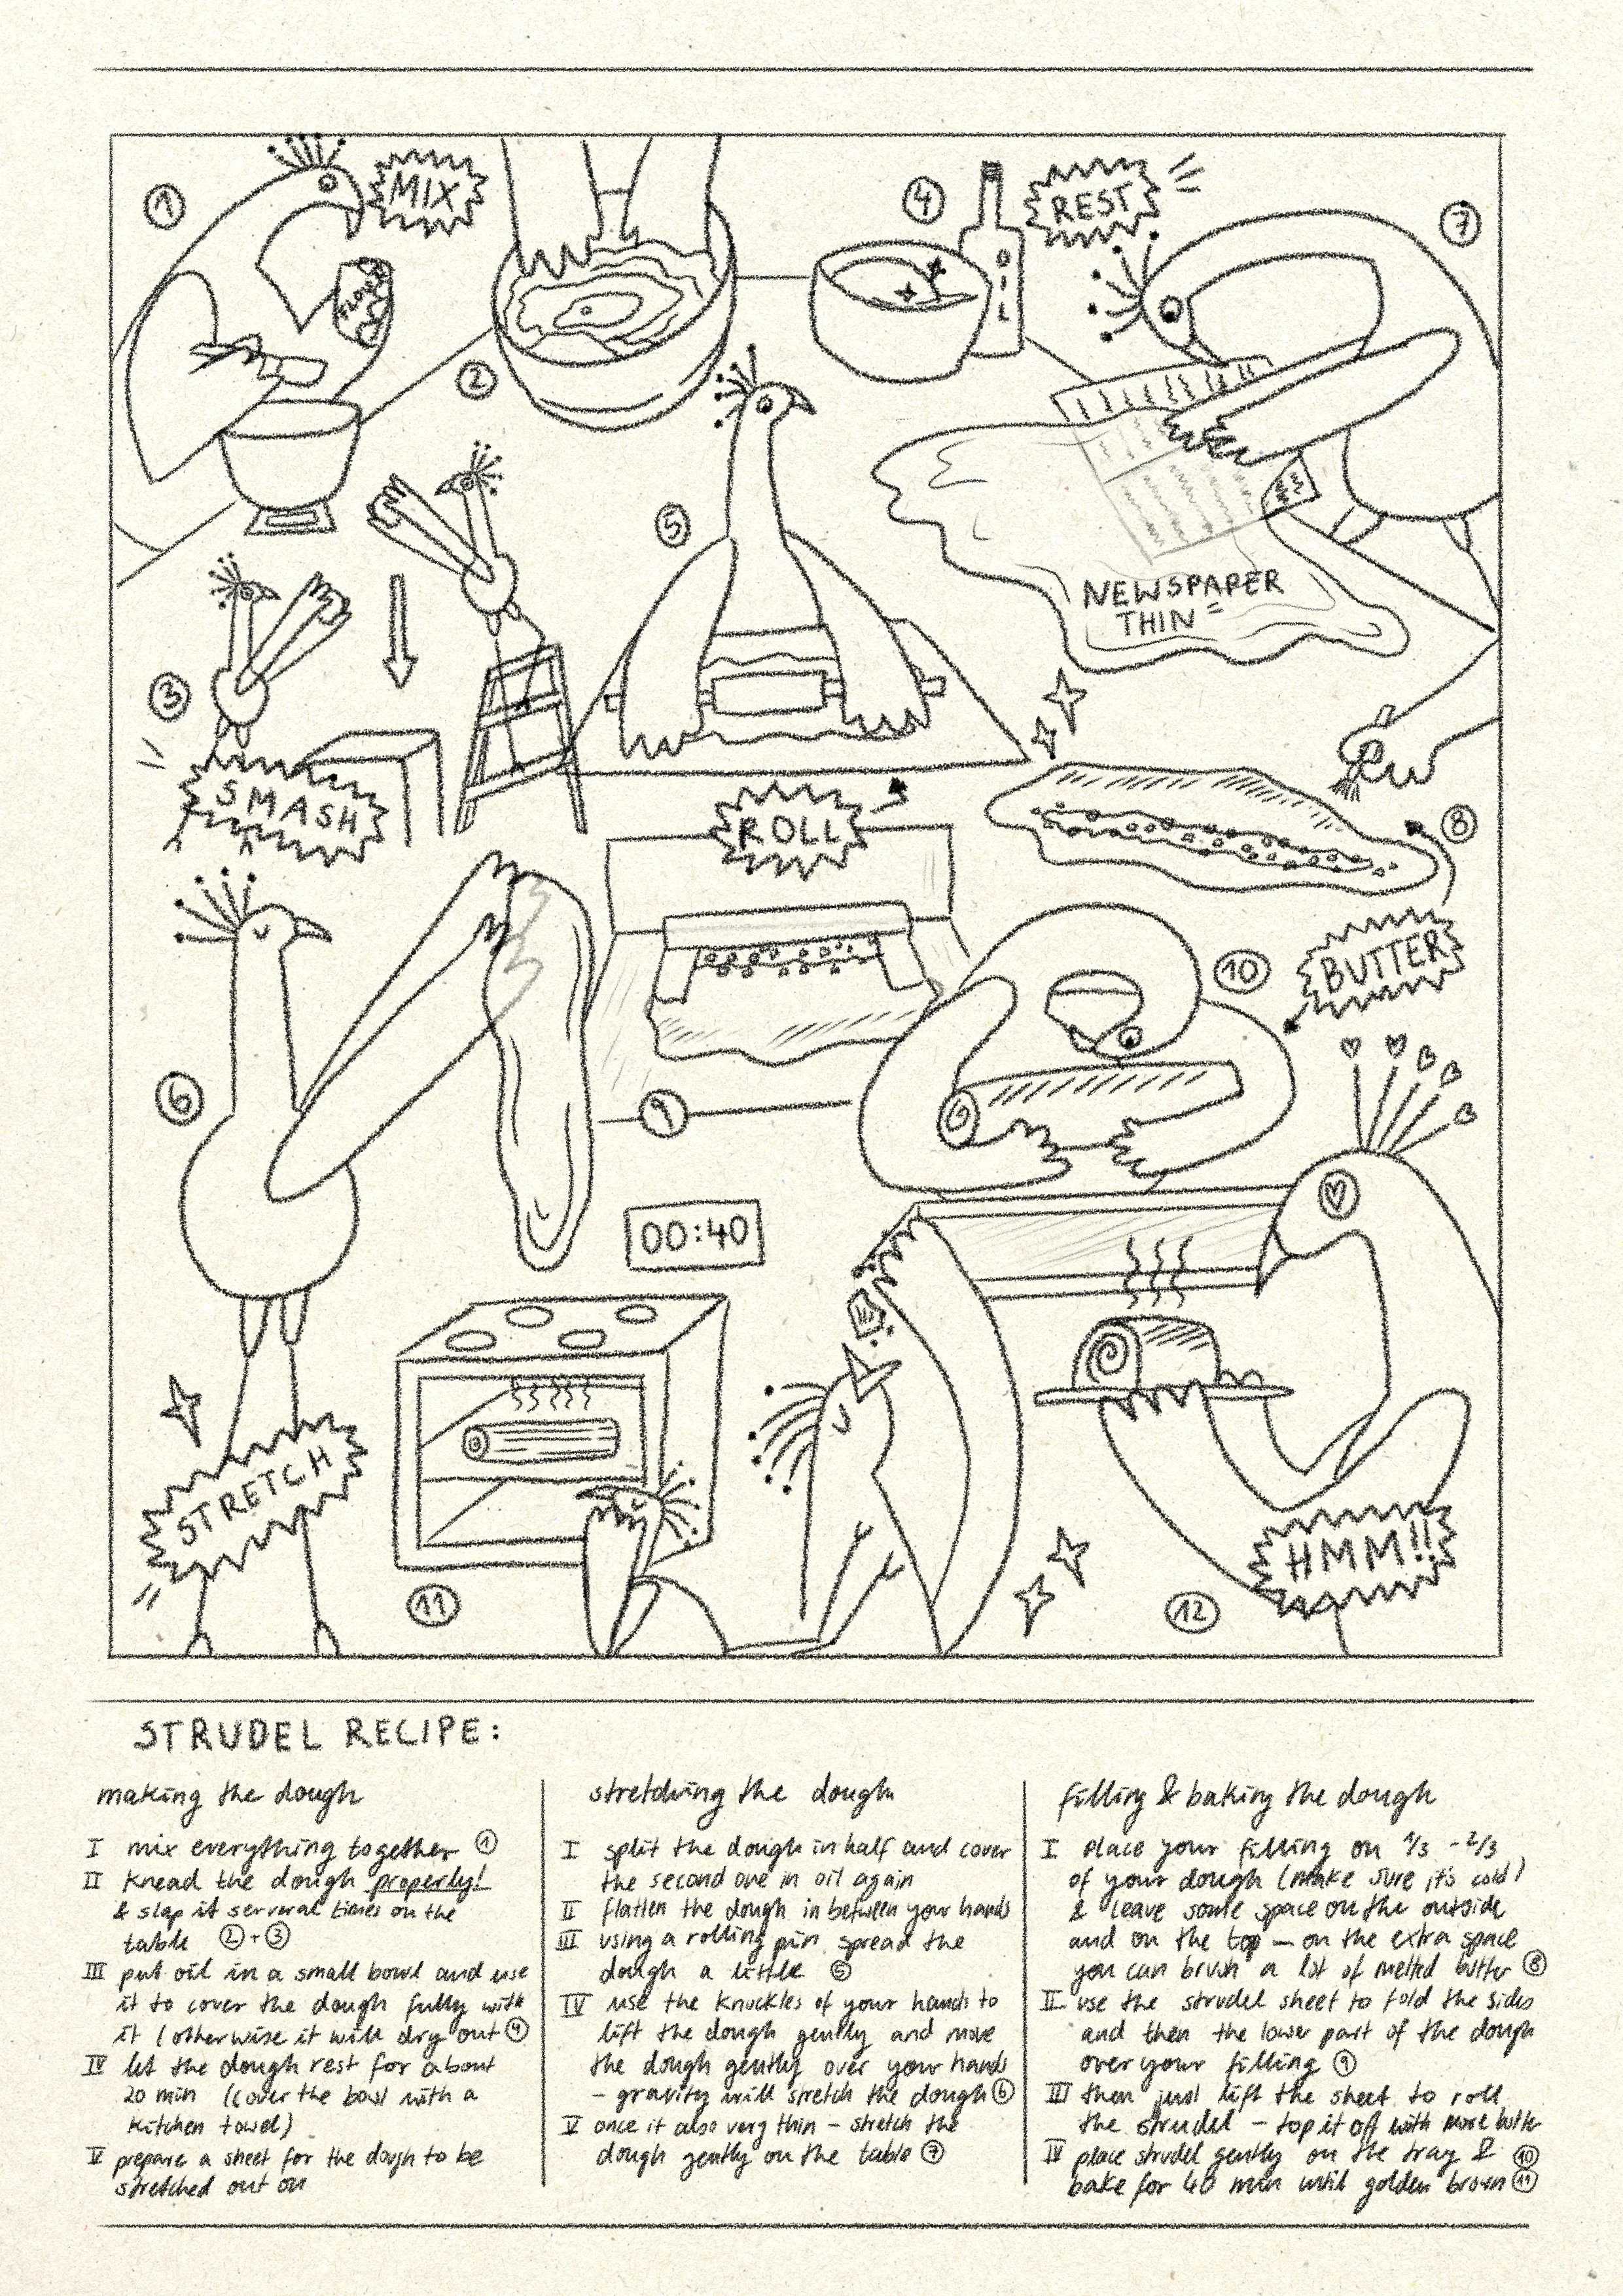 1
MIX
FLOUR
2
4
OIL
REST
7
NEWSPAPER
THIN
3
SMASH
5
ROLL
8
BUTTER
6
9
10
00:40
STRETCH
11
12
HMM!!
STRUDEL RECIPE:
making the dough
I mix everything together 1
II knead the dough properly!
& slap it serveral times on the
table 2+3
III put oil in a small bowl and use
it to cover the dough fully with
it (otherwise it will dry out 4
IV let the dough rest for about
20 min (cover the bowl with a
kitchen towel)
V prepare a sheet for the dough to be
stretched out on
stretching the dough
I split the dough in half and cover
the second one in oil again
II flatten the dough in between your hands
III using a rolling pin spread the
dough a little 5
IV use the knuckles of your hands to
lift the dough gently and move
the dough gently over your hands
- gravity will stretch the dough 6
V once it also very thin - stretch the
dough gently on the table 7
filling & baking the dough
I place your filling on 1/3 - 2/3
of your dough (make sure it's cold)
& leave some space on the outside
and on the top - on the extra space
you can brush a lot of melted butter 8
II use the strudel sheet to fold the sides
and then the lower part of the dough
over your filling 9
III then just lift the sheet to roll
the strudel - top it off with more butter
IV place strudel gently on the tray & 10
bake for 40 min until golden brown 11